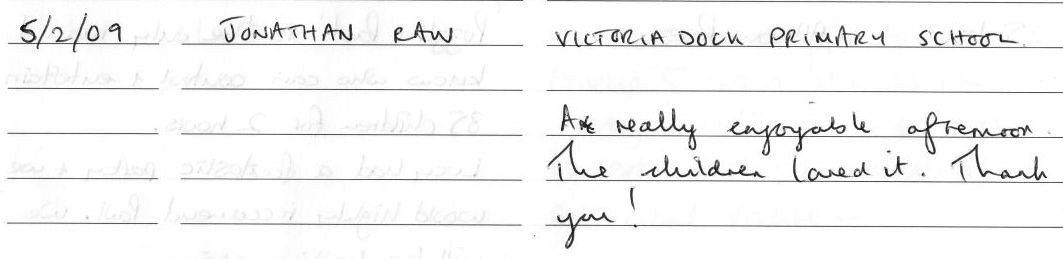 5/2/09 JONATHAN RAW VICTORIA DOCK PRIMARY SCHOOL.
A really enjoyable afternoon.
The children loved it. Thank
you!